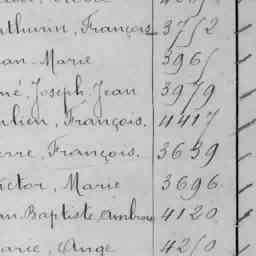 thurin, François 3752
an Marie 3965
né, Joseph, Jean 3979
lien, François. 4417
erre, François. 3659
ictor, Marie 3696
an Baptiste, Ambroi 4120
arie, Ange 4250